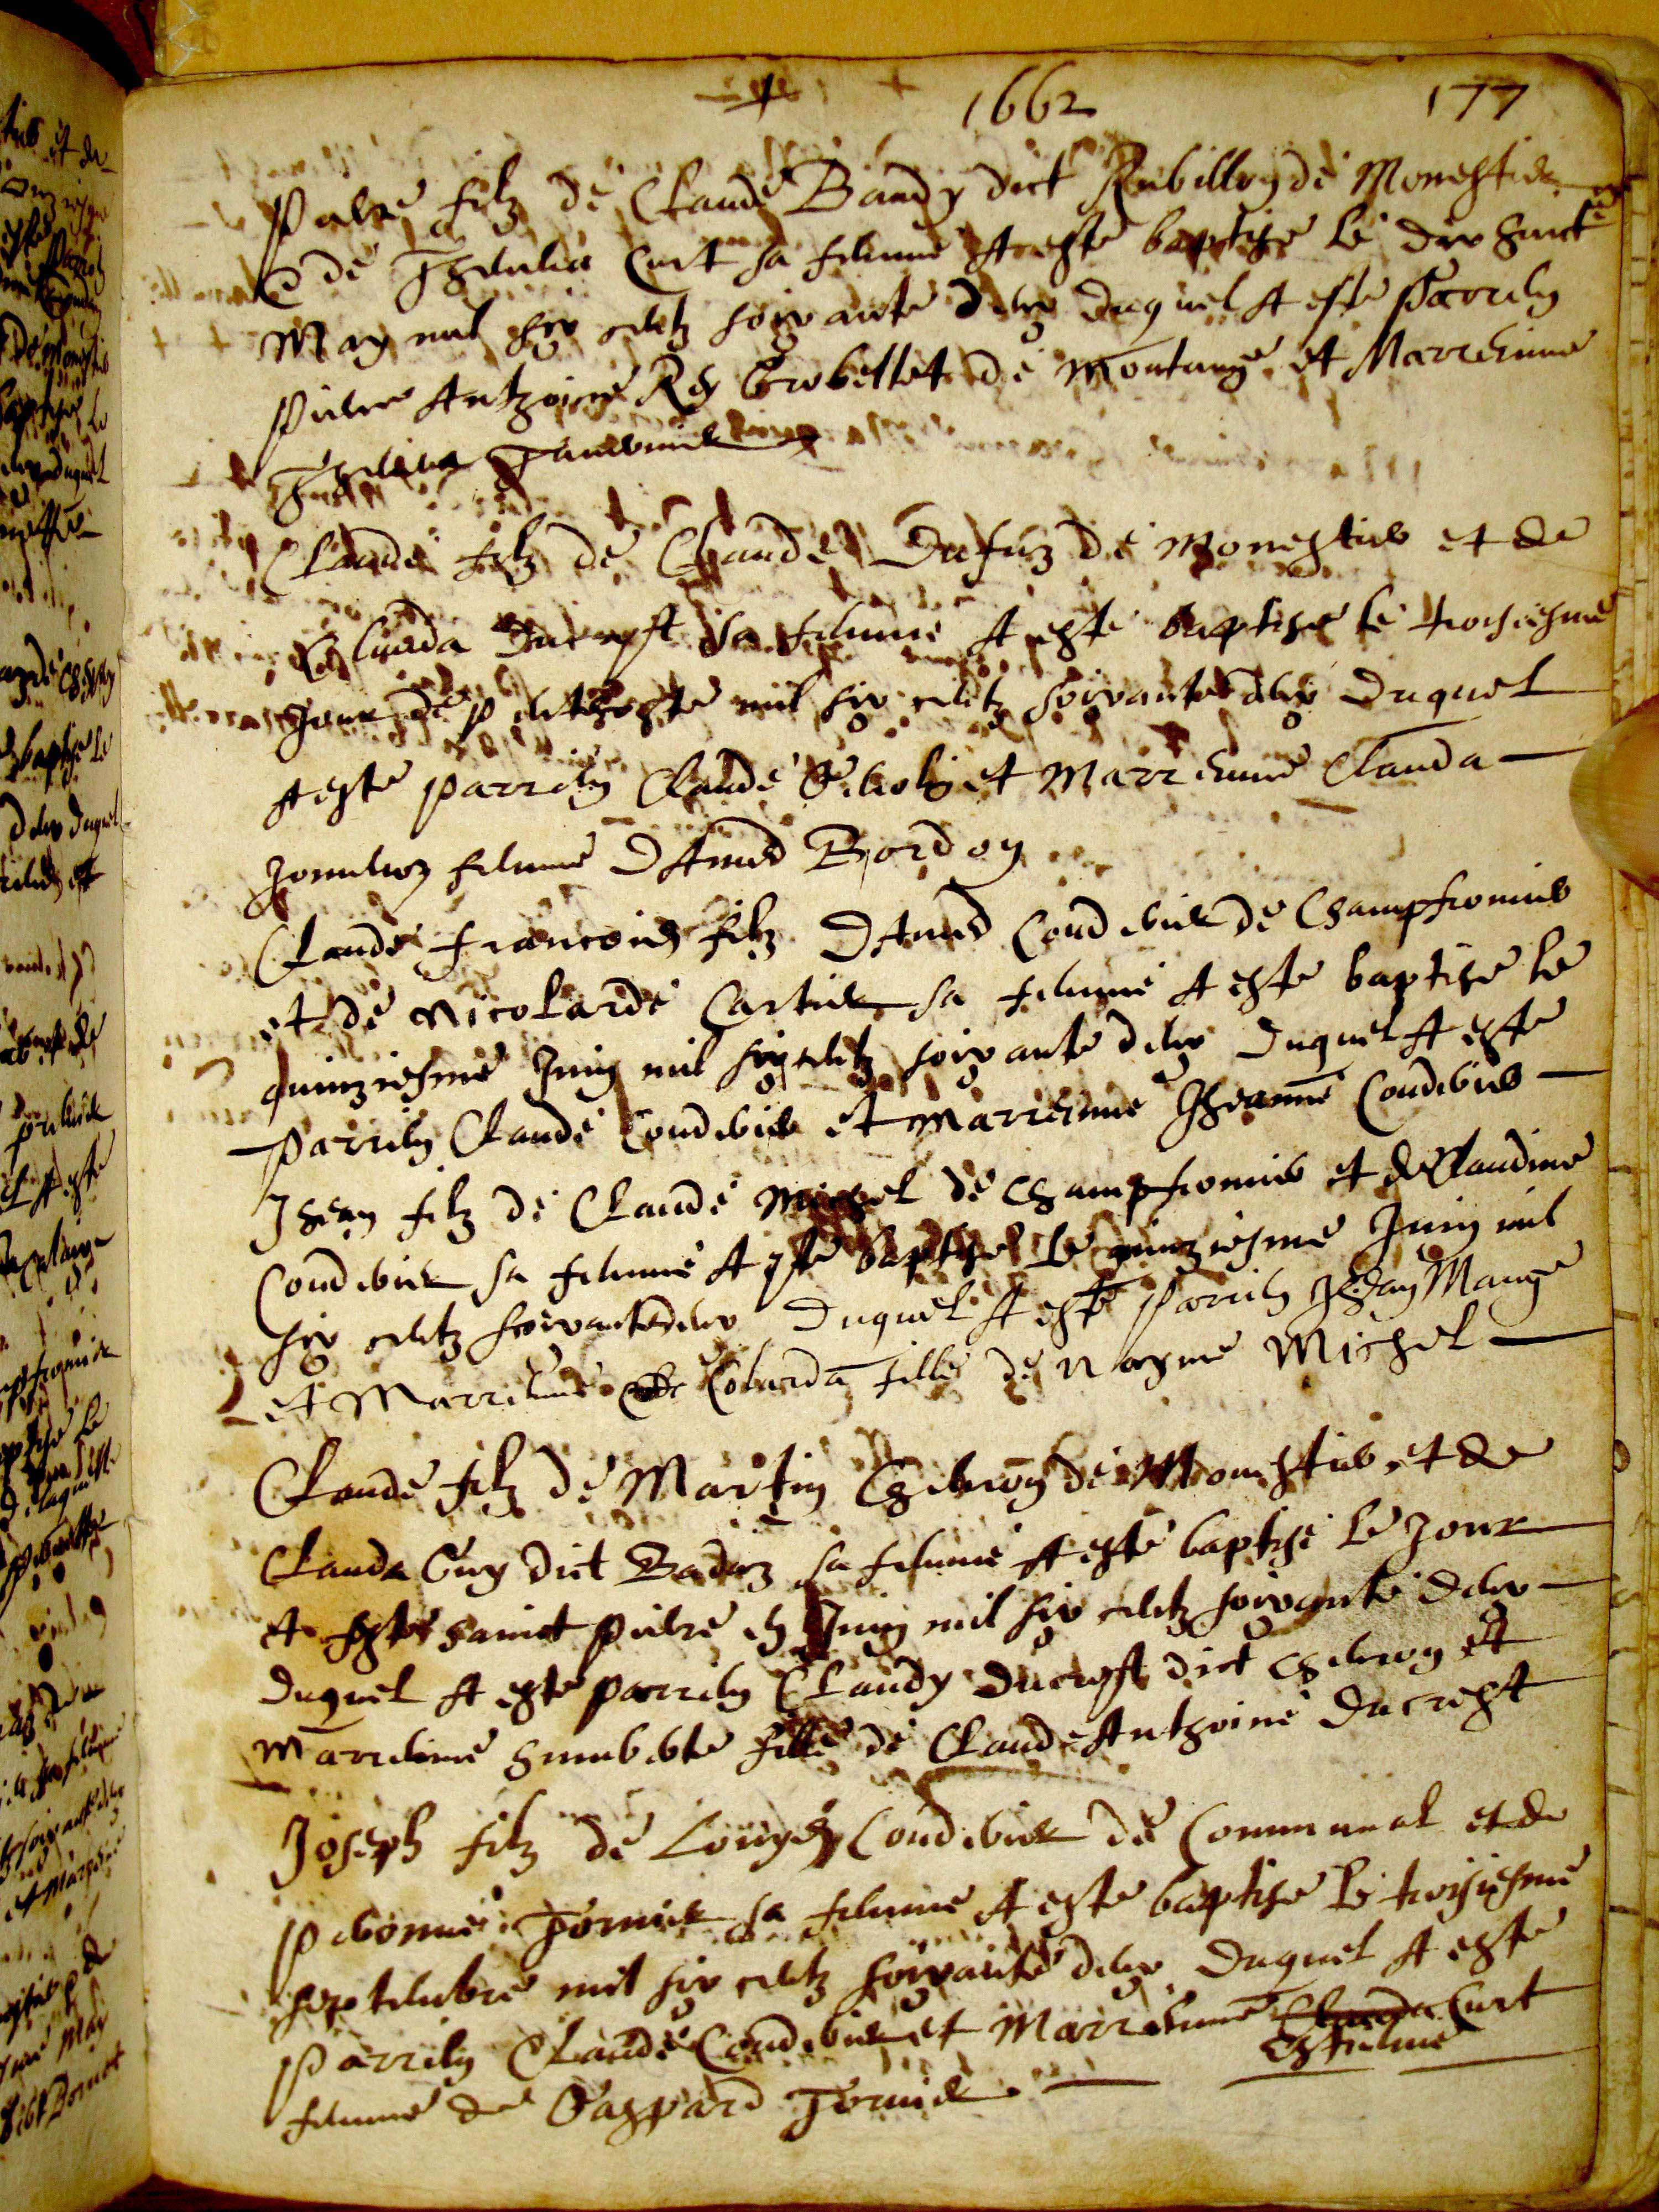 1662 177
filz de Claude Bandy dict de Monestier
de Thevenaz Curt sa femme A este baptise le dix huict
May mil six centz soixante deux duquel A este Parrein
Pierre Anthoine Rey Grobellet de Montange et Marreinne
Claude filz de Claude Dufuz de Monestier et de
Ducrest sa femme A este baptise le troysiesme
Jour de penthecoste mil six centz soixante deux Duquel
A este parrein Claude et Marreinne Clauda
femme D Amed Bordon
Claude Francois filz D Amed Coudevier de Champfromier
et de Nicolarde Cartier sa femme A este baptise le
quinziesme Juin mil six centz soixante deux Duquel A este
Parrein Claude Coudevier et Marreinne Jheanne Coudevier
Jhean filz de Claude Michel de Champfromier et de Claudine
Coudevier sa femme A este baptise le quinziesme Juin mil
six centz soixante deux Duquel A este Parrein Jhean Mange
et Marreinne Colarda fille de Nayme Michel
Claude filz de Martin de Monestier et de
Clauda Guy dict Badaz sa femme A este baptise le Jour
et feste Sainct Pierre en Juin mil six centz soixante deux
Duquel A este parrein Claudy Ducrest dict et
Marreinne fille de Claude Anthoine Ducrest
Joseph filz de Louys Coudevier de Communal et de
Pevonne Tornier sa femme A este baptise le troysiesme
septembre mil six centz soixante deux Duquel A este
Parrein Claude Coudevier et Marreinne Clauda Curt
Estienne
femme de Gaspard Tornier